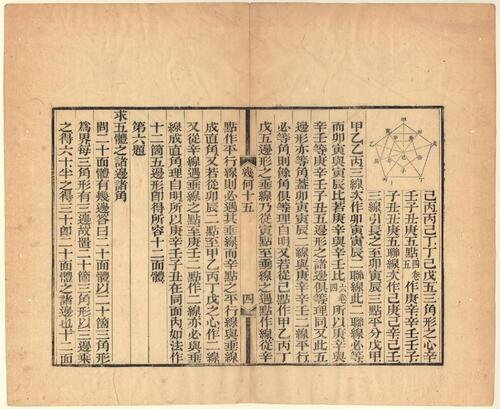 己丙丙己丁丁己戊五三角形之心辛
壬子丑庚五點四卷五作庚辛辛壬壬子
子丑丑庚五聯線次作己庚己辛己壬
三線引長之至卯寅辰三點平分戊甲
甲乙乙丙三線次作卯寅寅辰二聯線此二聯線必等
而卯寅與寅辰比若庚辛與辛壬比六卷四所以庚辛與
辛壬等庚辛壬子丑五邊形之諸邊俱等理同又此五
邊形亦等角蓋卯寅寅辰二線與庚辛辛壬二線平行
必等角則餘角俱等理自明又若從己點作甲乙丙丁
戊五邊形之垂線乃從寅點至垂線之遇點作線從辛
幾何十五
四
點作平行線則必遇其垂線而辛點之平行線與垂線
成直角又若從卯辰二點至甲乙丙丁戊之心作二線
又從辛線遇垂線之點至庚壬二點作二線亦必與垂
線成直角理自明所以庚辛壬子丑在同面內如法作
十二箇五邊形卽得所容十二面體
第六題
求五體之諸邊諸角
問二十面體有幾邊答曰二十面體以二十箇三角形
爲界每三角形有三邊故置二十箇三角形以三邊乘
之得六十半之得三十卽二十面體之諸邊也十二面